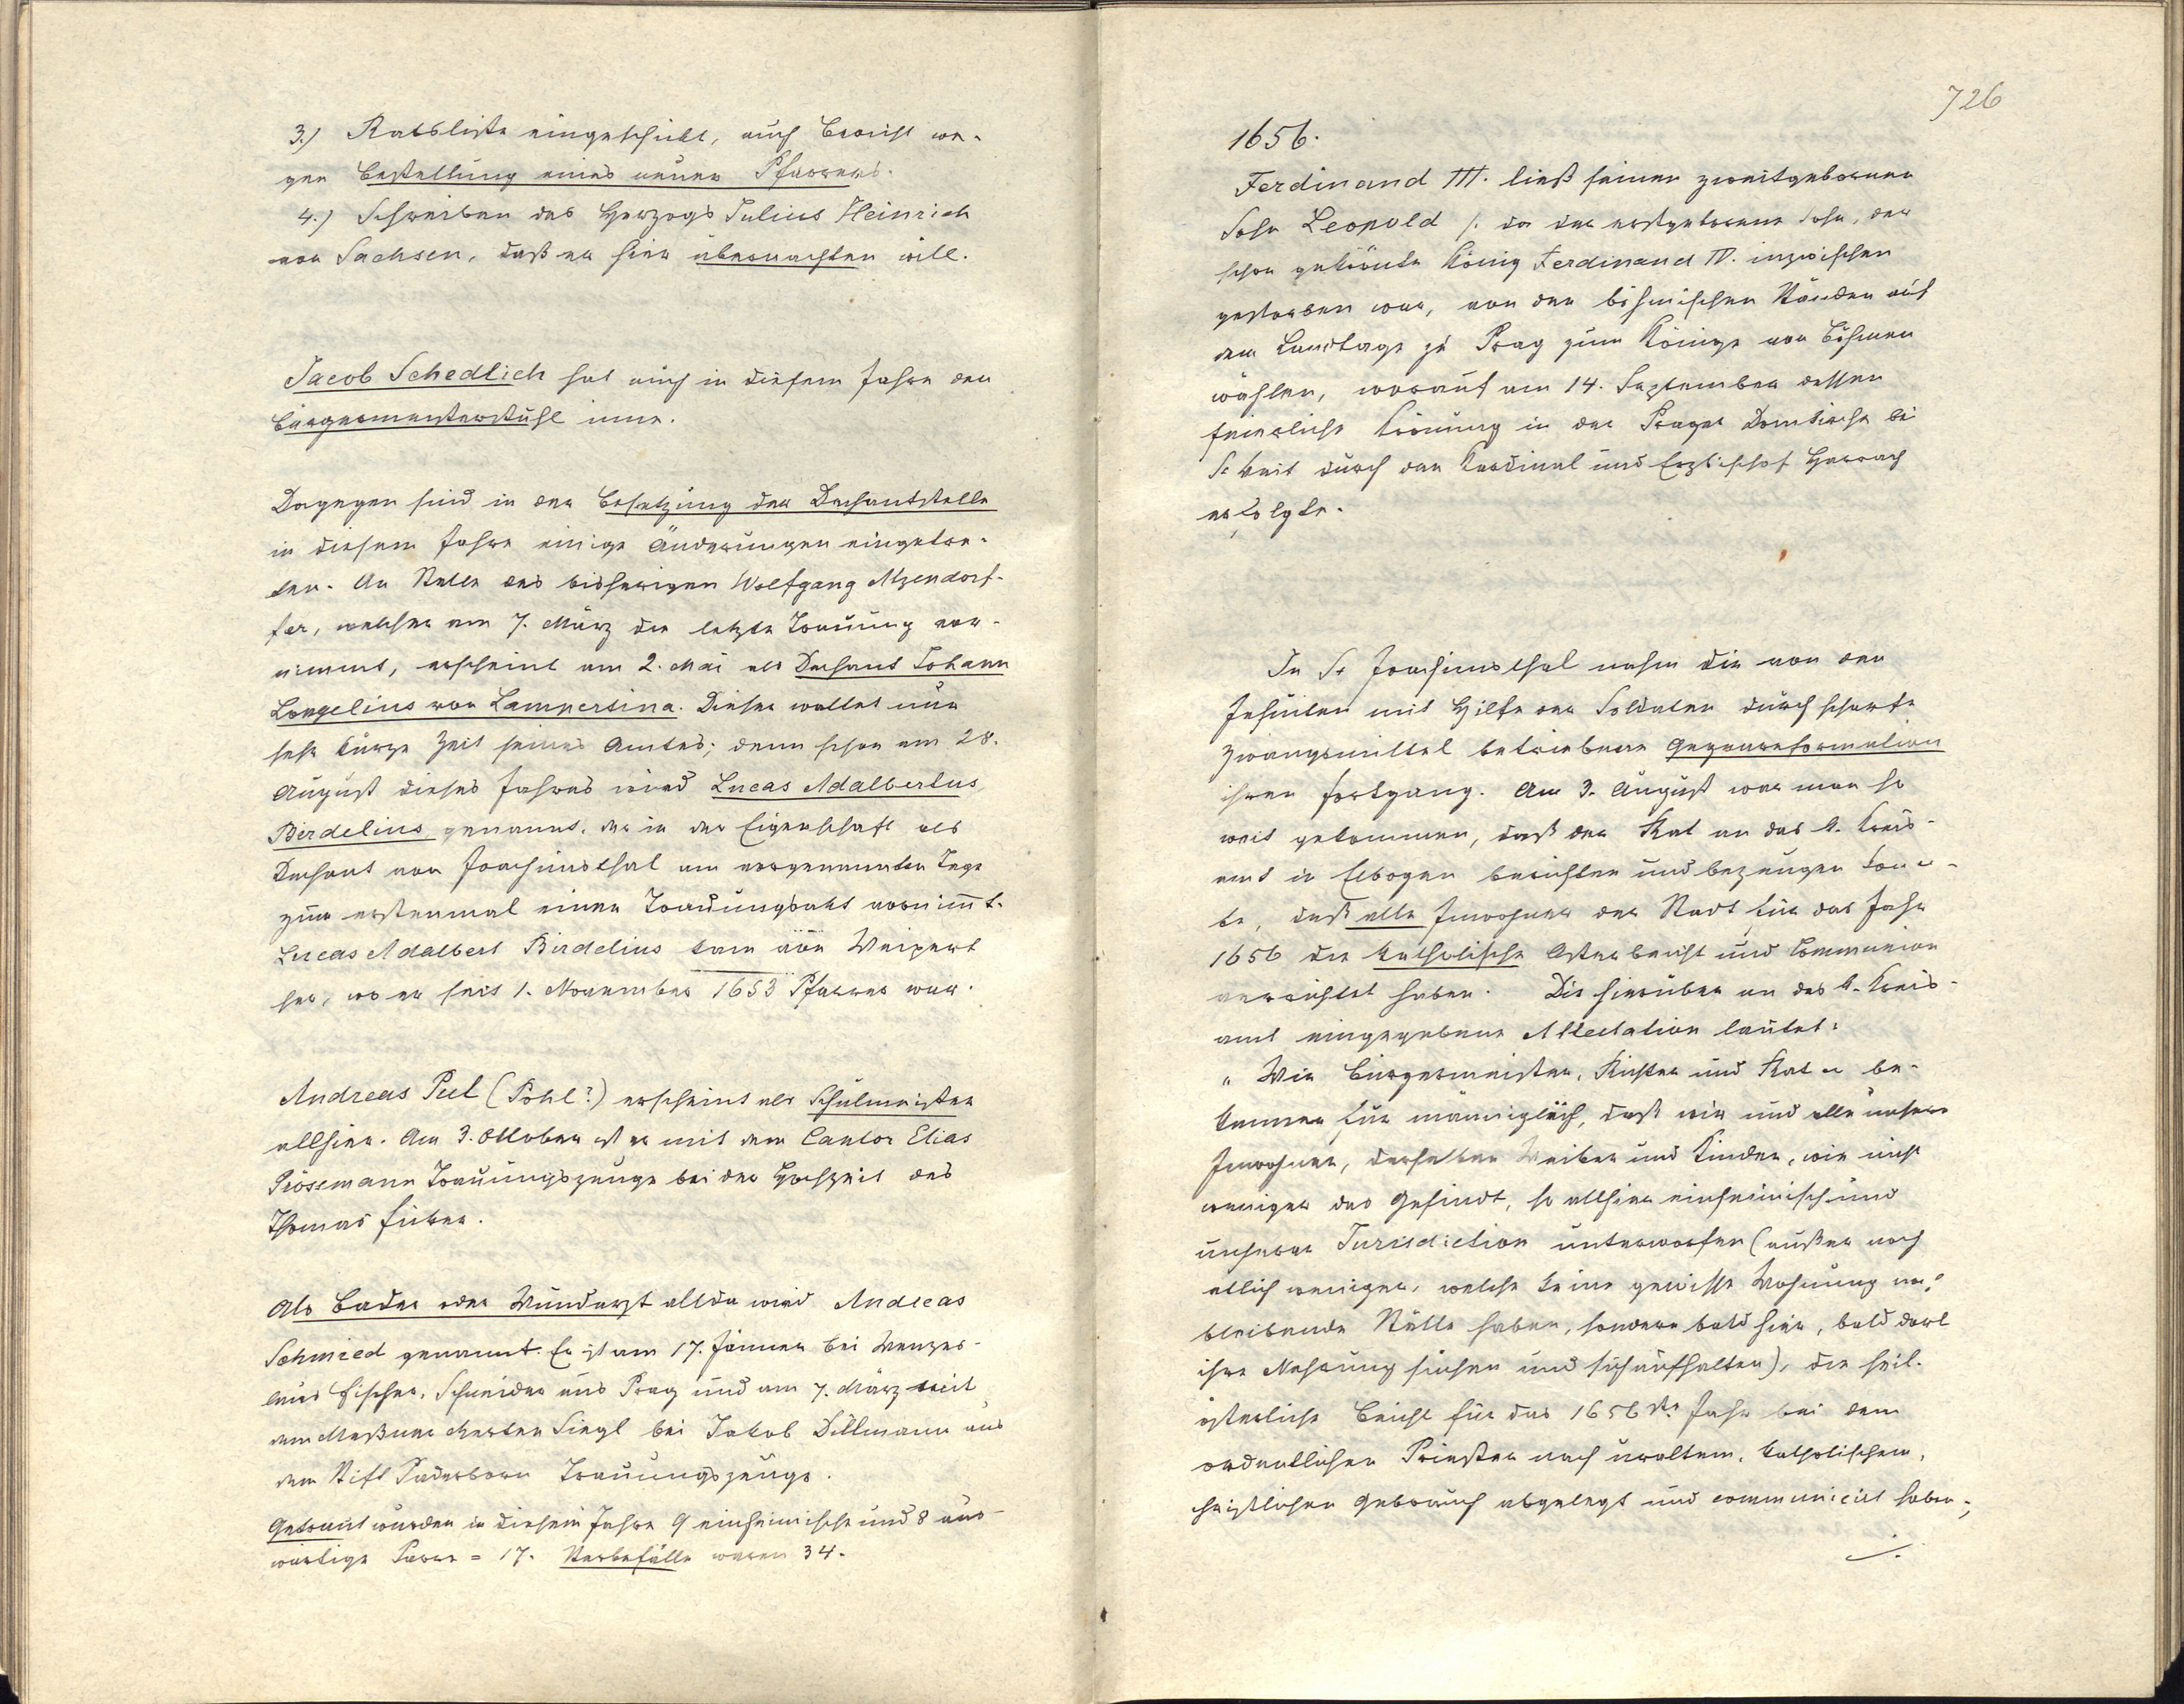 3.) Ratsliste eingeschickt, auch Bericht we-
gen Bestellung eines neuen Pfarrers.
4.) Schreiben des Herzogs Julius Heinrich
von Sachsen, daß er hier übernachten will.
Jacob Schedlich hat auch in diesem Jahre den
Bürgermeisterstuhl inne.
Dagegen sind in der Besetzung der Dechantstelle
in diesem Jahre einige Änderungen eingetre-
ten. An Stelle des bisherigen Wolfgang Atzendorf-
fer, welcher am 7. März die letzte Trauung vor-
nimmt, erscheint am 2. Mai als Dechant Johann
Longelius von Lampersina. Dieser waltet nur
sehr kurze Zeit seines Amtes; denn schon am 28.
August dieses Jahres wird Lucas Adalbertus
Birdelius genannt, der in der Eigenschaft als
Dechant von Joachimsthal am vorgenannten Tage
zum erstenmal einen Trauungsakt vornimmt.
Lucas Adalbert Birdelius kam von Weipert
her, wo er seit 1. November 1653 Pfarrer war.
Andreas Pul (Pohl?) erscheint als Schulmeister
allhier. Am 3. Oktober ist er mit dem Cantor Elias
Prössmann Trauungszeuge bei der Hochzeit des
Thomas Fuker.
Als Bader oder Wundarzt allda wird Andreas
Schmied genannt. Er ist am 17. Jänner bei Wenzes-
laus Fischer, Schneider aus Prag und am 7. März mit
dem Meßner Merten Siegl bei Jakob Dillmann aus
dem Stift Paderborn Trauungszeuge.
Getraut wurden in diesem Jahre 9 einheimische und 8 aus-
wärtige Paare = 17. Sterbefälle waren 34.
726
1656.
Ferdinand III. ließ seinen zweitgebornen
Sohn Leopold /: da der erstgeborene Sohn, der
schon gekrönte König Ferdinand IV. inzwischen
gestorben war, von den böhmischen Ständen auf
dem Landtage zu Prag zum Könige von Böhmen
wählen, worauf am 14. September dessen
feierliche Krönung in der Prager Domkirche bei
St Veit durch den Kardinal und Erzbischof Harrach
erfolgte.
In St Joachimsthal nahm die von den
Jesuiten mit Hilfe der Soldaten durch scharfe
Zwangsmittel betriebene Gegenreformation
ihren Fortgang. Am 3. August war man so
weit gekommen, daß der Rat an das k. Kreis-
amt in Elbogen berichten und bezeugen konn-
te, daß alle Inwohner der Stadt für das Jahr
1656 die katholische Osterbeicht und Communion
verrichtet haben. Die hierüber an das k. Kreis-
amt eingegebene Attestation lautet:
„Wir Bürgermeister, Richter und Rat u be-
kennen für männiglich, daß wir und alle unsere
Inwohner, derselben Weiber und Kinder, wie nicht
weniger das Gesindt, so allhier einheimisch und
unserer Jurisdiction unterworfen (außer noch
etlich weniger, welche keine gewisse Wohnung no.
bleibende Stelle haben, sondern bald hier, bald dort
ihre Nahrung suchen und sich aufhalten), die heil.
österliche Beicht für das 1656ste Jahr bei dem
ordentlichen Priester nach uraltem, katholischem,
christlichen Gebrauch abgelegt und communicirt haben;
./.